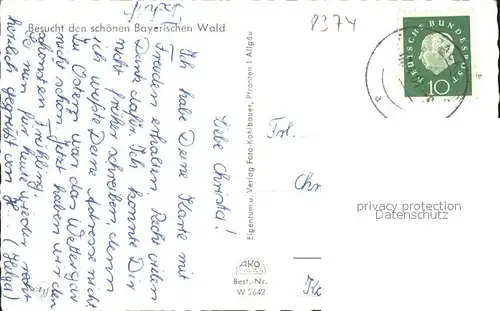 Besucht den schönen Bayerischen Wald
8374
Liebe Christa!
Ich habe Deine Karte mit
Freuden erhalten. Recht vielen
Dank dafür. Ich konnte Dir
nicht früher schreiben, denn
ich wußte Deine Adresse nicht
Zu Ostern war das Wetter gar
nicht schön. Jetzt haben wir den
schönsten Frühling.
Sei nun für heute wieder recht
herzlich gegrüßt von H.
(Helga)
Eigentum u. Verlag Foto-Kohlbauer, Pfronten i Allgäu
AKO
Best.-Nr.
W 2642
DEUTSCHE BUNDESPOST
10
Frl.
Chr
privacy protection
Datenschutz